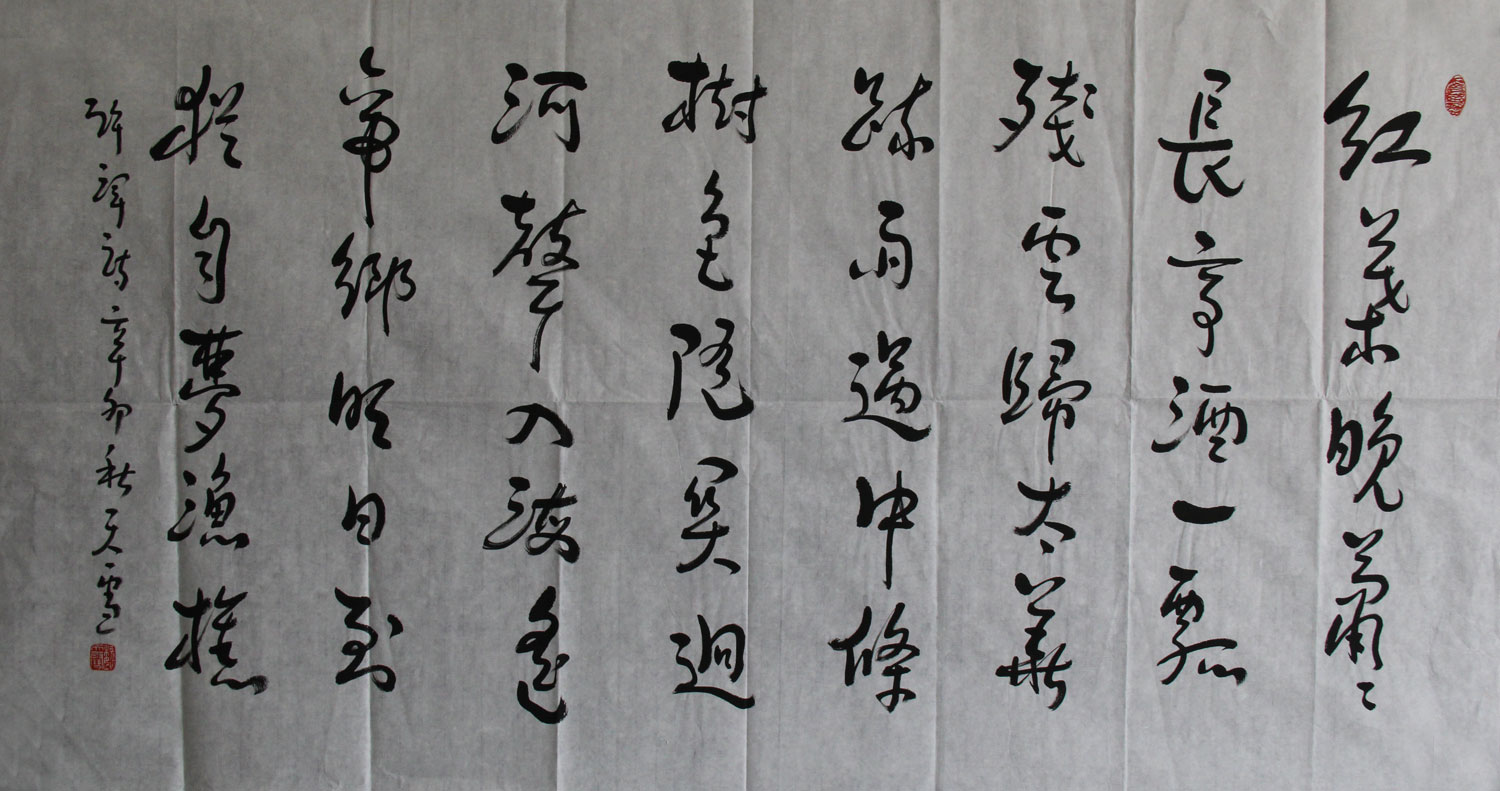 紅葉晚蕭〻
長亭酒一瓢
殘雲歸太華
疏雨過中條
樹色隨關迥
河聲入海遙
帝鄉明日到
猶自夢漁樵
許渾詩辛卯秋天雪